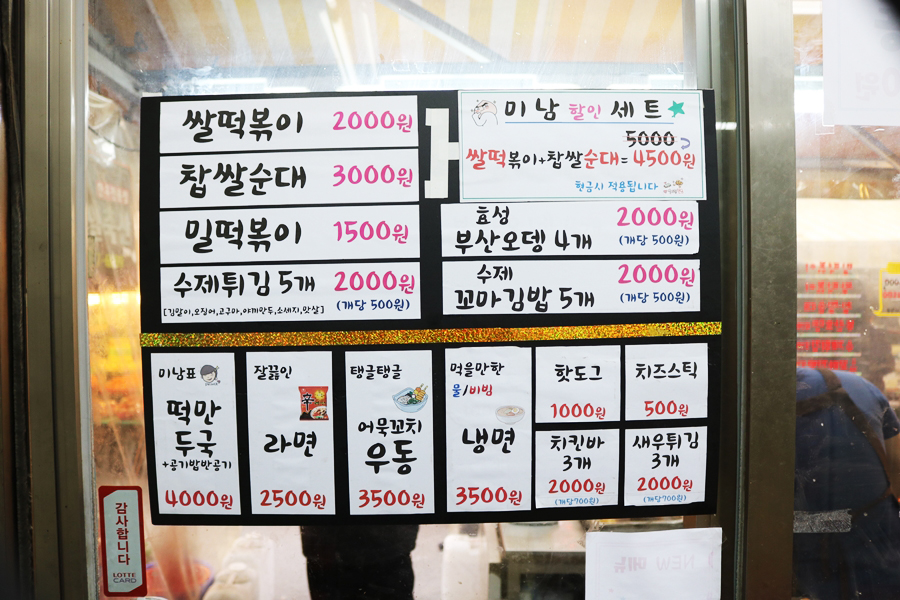 쌀떡볶이 2000원
찹쌀순대 3000원
밀떡볶이 1500원
수제튀김 5개 2000원
(개당 500원)
[김말이,오징어,고구마,야끼만두,소세지,맛살]
미남 할인 세트
5000
쌀떡볶이+찹쌀순대=4500원
현금시 적용됩니다
효성
부산오뎅 4개 2000원
(개당 500원)
수제
꼬마김밥 5개 2000원
(개당 500원)
미남표
떡만
두국
+공기밥반공기
4000원
잘끓인
라면
2500원
탱글탱글
어묵꼬치
우동
3500원
먹을만한
물/비빔
냉면
3500원
핫도그
1000원
치즈스틱
500원
치킨바
3개
2000원
(개당700원)
새우튀김
3개
2000원
(개당700원)
감사합니다
LOTTE
CARD
NEW 메뉴